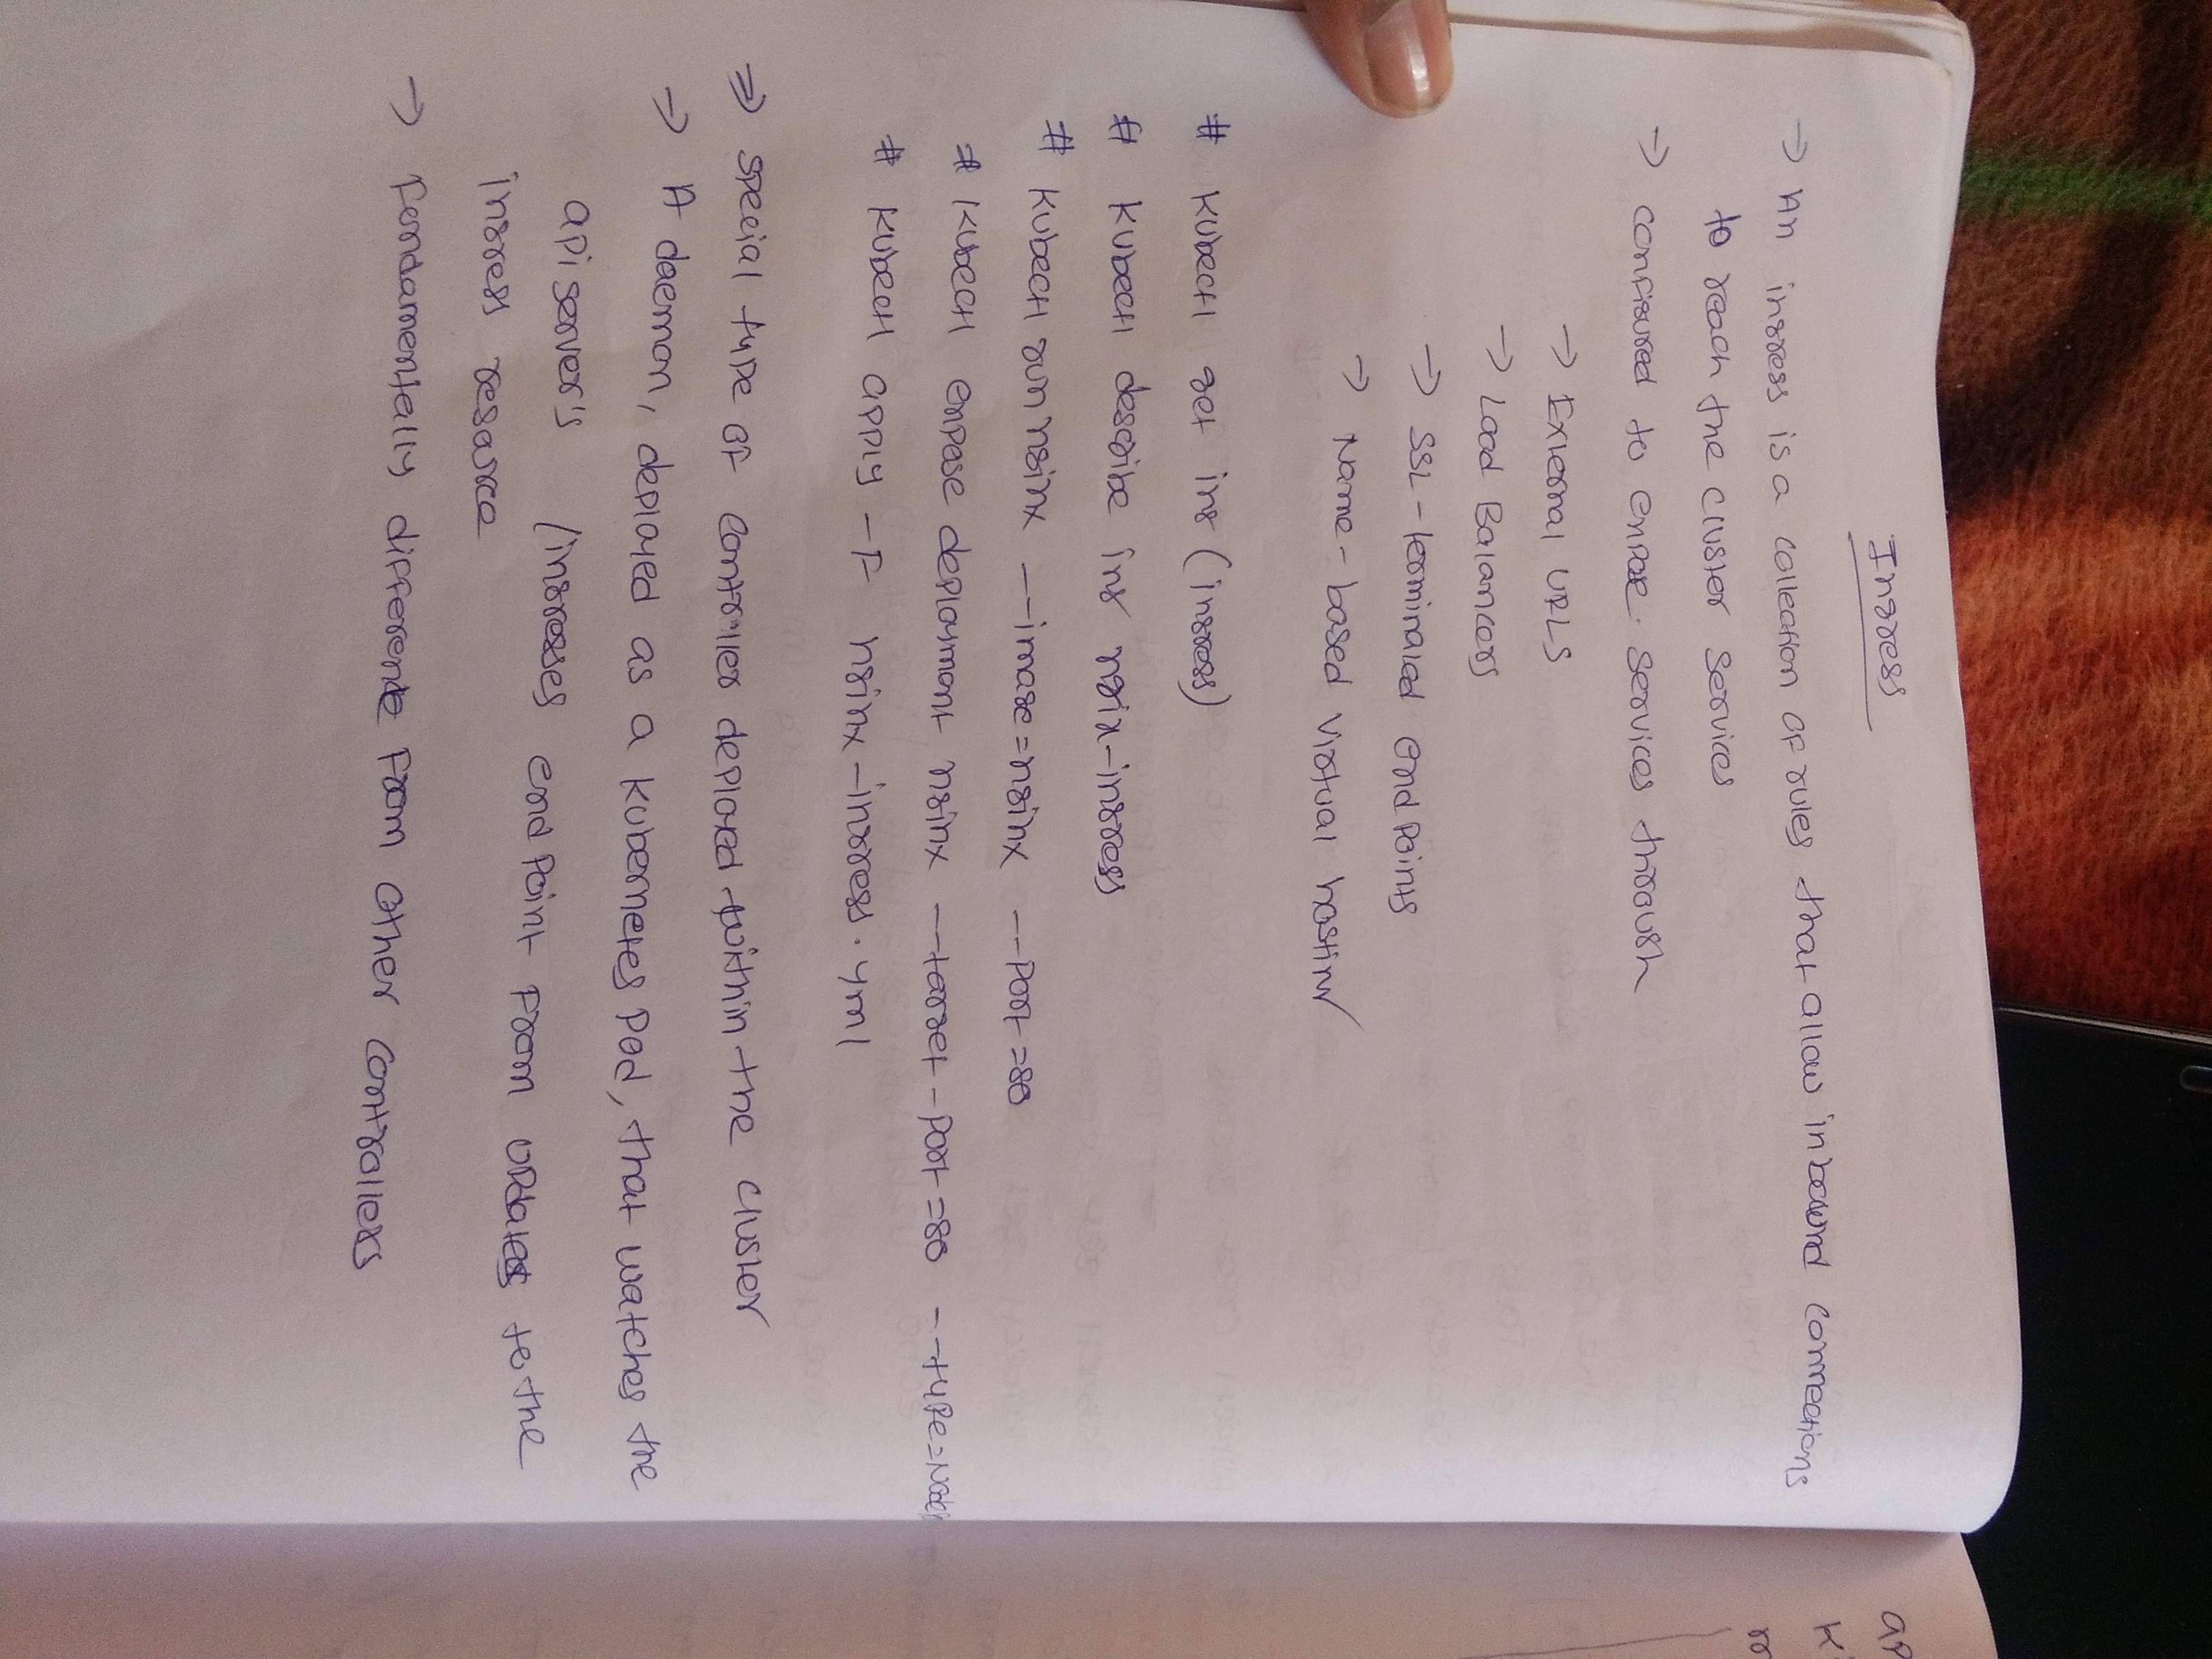 Ingress
→ An ingress is a collection of rules that allow inbound connections
to reach the cluster services
→ configured to expose services through
→ External URLS
→ Load Balancers
→ SSL-terminated end points
→ Name-based virtual hosting
# kubectl get ing (ingress)
# kubectl describe ing ngix-ingress
# kubectl run nginx --image=nginx --port=80
# kubectl expose deployment nginx --target-port=80 --type=Node
# kubectl apply -f nginx-ingress.yml
⇒ special type of controller deployed within the cluster
→ A daemon, deployed as a kubernetes pod, that watches the
api server's /ingresses end point from updates to the
ingress resource
→ fundamentally different from other controllers
ap
K